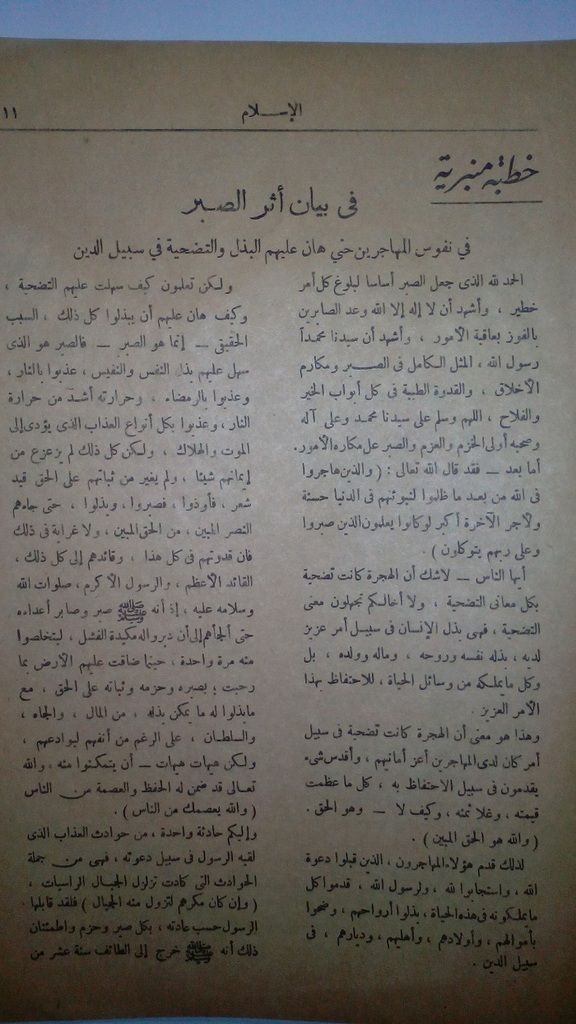 الإسـلام
١١
خطبة منبرية
فى بيان أثر الصبر
فى نفوس المهاجرين حتى هان عليهم البذل والتضحية فى سبيل الدين
الحمد لله الذى جعل الصبر أساسا لبلوغ كل أمر
خطير ، وأشهد أن لا إله إلا الله وعد الصابرين
بالفوز بعاقبة الأمور ، وأشهد أن سيدنا محمداً
رسول الله ، المثل الكامل فى الصبر ومكارم
الأخلاق ، والقدوة الطيبة فى كل أبواب الخير
والفلاح ، اللهم وسلم على سيدنا محمد وعلى آله
وصحبه أولى الحزم والعزم والصبر على مكاره الأمور.
أما بعد — فقد قال الله تعالى : ( والذين هاجروا
فى الله من بعد ما ظلموا لنبوئنهم فى الدنيا حسنة
ولأجر الآخرة أكبر لو كانوا يعلمون الذين صبروا
وعلى ربهم يتوكلون ) .
أيها الناس — لاشك أن الهجرة كانت تضحية
بكل معانى التضحية ، ولا أخالكم تجهلون معنى
التضحية ، فهى بذل الإنسان فى سبيل أمر عزيز
لديه ، بذله نفسه وروحه ، وماله وولده ، بل
وكل ما يملكه من وسائل الحياة ، للاحتفاظ بهذا
الأمر العزيز .
وهذا هو معنى أن الهجرة كانت تضحية فى سبيل
أمر كان لدى المهاجرين أعز أمانيهم ، وأقدس شىء
يقدمون فى سبيل الاحتفاظ به ، كل ما عظمت
قيمته ، وغلا ثمنه ، وكيف لا — وهو الحق .
( والله هو الحق المبين ) .
لذلك قدم هؤلاء المهاجرون ، الذين قبلوا دعوة
الله ، واستجابوا لله ، ولرسول الله ، قدموا كل
ما يملكونه فى هذه الحياة ، بذلوا أرواحهم ، وضحوا
بأموالهم ، وأولادهم ، وأهليهم ، وديارهم ، فى
سبيل الدين .
ولكن تعلمون كيف سهلت عليهم التضحية ،
وكيف هان عليهم أن يبذلوا كل ذلك ، السبب
الحقيقى — إنما هو الصبر — فالصبر هو الذى
سهل عليهم بذل النفس والنفيس ، عذبوا بالنار ،
وعذبوا بالرمضاء ، وحرارته أشد من حرارة
النار ، وعذبوا بكل أنواع العذاب الذى يؤدى إلى
الموت والهلاك ، ولكن كل ذلك لم يزعزع من
إيمانهم شيئا ، ولم يغير من ثباتهم على الحق قيد
شعر ، فأوذوا ، فصبروا ، وبذلوا ، حتى جاءهم
النصر المبين ، من الحق المبين ، ولا غرابة فى ذلك
فان قدوتهم فى كل هذا ، وقائدهم إلى كل ذلك ،
القائد الأعظم ، والرسول الأكرم ، صلوات الله
وسلامه عليه ، إذ أنه ﷺ صبر وصابر أعداءه
حتى ألجأهم إلى أن دبروا له مكيدة الفشل ، ليتخلصوا
منه مرة واحدة ، حينما ضاقت عليهم الأرض بما
رحبت ؛ بصبره وحزمه وثباته على الحق ، مع
ما بذلوا له ما يمكن بذله ، من المال ، والجاه ،
والسلطان ، على الرغم من أنفهم ليوادعهم ،
ولكن هيهات هيهات — أن يتمكنوا منه ، والله
تعالى قد ضمن له الحفظ والعصمة من الناس
( والله يعصمك من الناس ) .
وإليكم حادثة واحدة ، من حوادث العذاب الذى
لقيه الرسول فى سبيل دعوته ، فهى من جملة
الحوادث التى كادت تزلزل الجبال الراسيات ،
( وإن كان مكرهم لتزول منه الجبال ) فلقد قابلها
الرسول حسب عادته ، بكل صبر وحزم واطمئنان
ذلك أنه ﷺ خرج إلى الطائف سنة عشر من